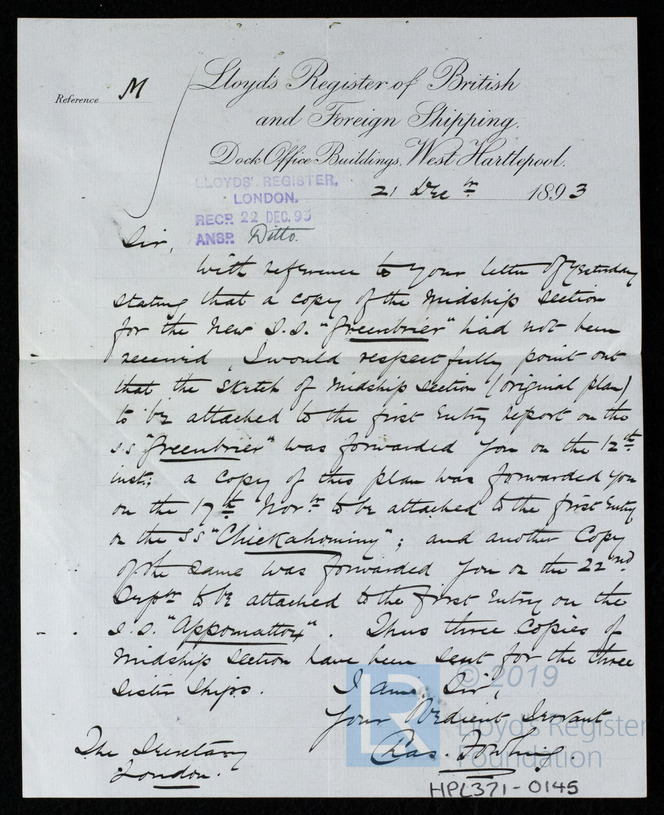 Reference M
Lloyds Register of British
and Foreign Shipping.
Dock Office Buildings, West Hartlepool.
21 Decr 1893
LLOYDS' REGISTER,
LONDON.
RECD. 22 DEC. 93
ANSD. Ditto.
Sir,
With reference to your letter of yesterday
stating that a copy of the Midship section
for the New S.S. "Greenbrier" had not been
received, I would respectfully point out
that the sketch of Midship section (original plan)
to be attached to the first Entry Report on the
SS "Greenbrier" was forwarded you on the 12th
inst; a copy of this plan was forwarded you
on the 17th Novr to be attached to the first Entry
on the SS "Chickahominy"; and another Copy
of the same was forwarded you on the 22nd
Septr to be attached to the first Entry on the
S.S. "Appomattox". Thus three Copies of
Midship section have been sent for the three
sister ships.
I am, Sir,
Your Obedient Servant
Chas.
The Secretary
London.
© 2019
LR
Lloyd's Register
Foundation
HPL371-0145